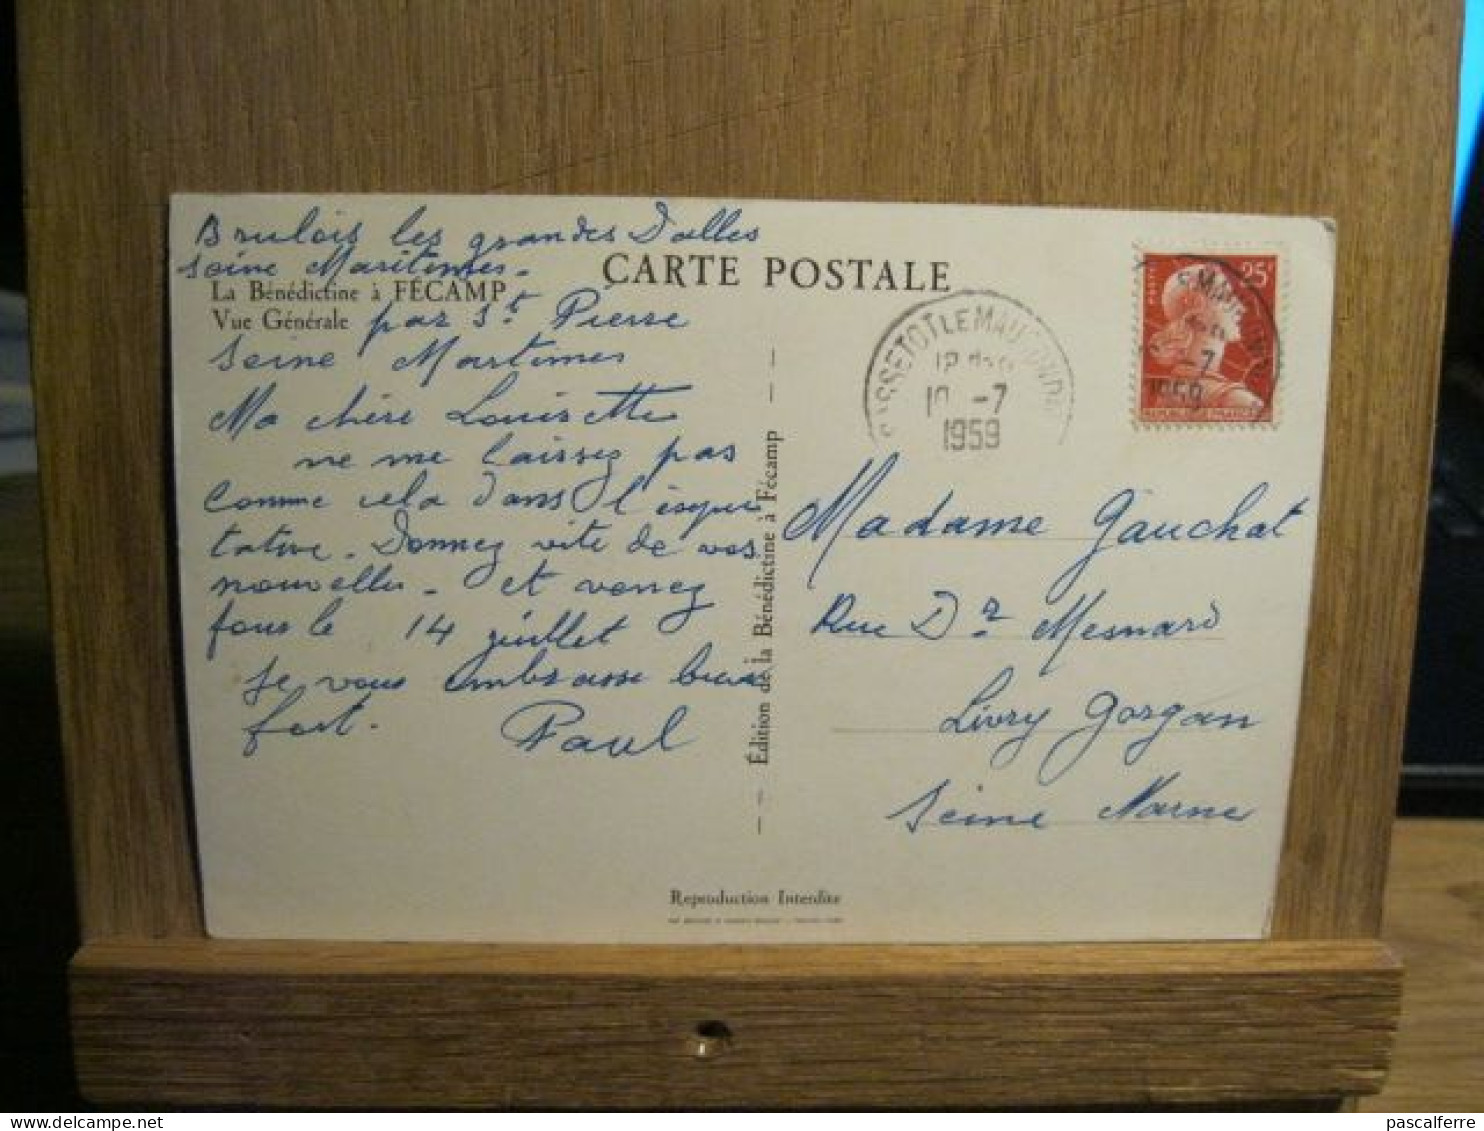 Brulois les grandes Dalles
Seine Maritimes.
CARTE POSTALE
La Bénédictine à FÉCAMP
Vue Générale
par St. Pierre
Seine Martimes
Ma chère Louisette
ne me laissez pas
comme cela dans l'expec
tative. Donnez vite de vos
nouvelles. et venez
pour le 14 juillet
Je vous embrasse bien
fort. Paul
Édition de la Bénédictine à Fécamp
25F
SASSETOT LE MAUCONDUIT
10 -7
1959
-7
1959
Madame Gauchat
Rue Dr Mesnard
Livry Gargan
Seine Marne
Reproduction Interdite
pascalferre